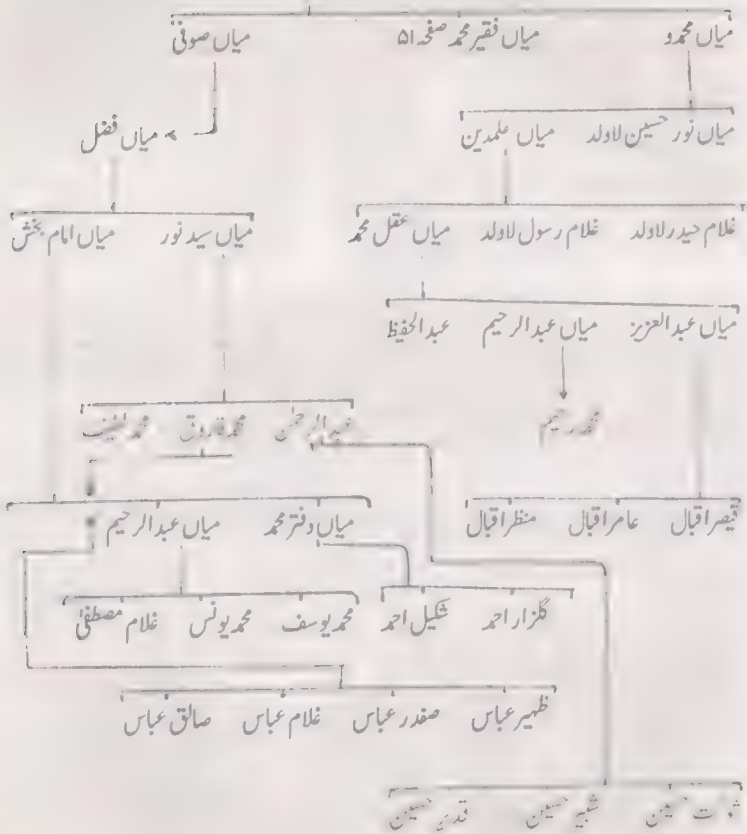 میاں محمدو میاں فقیر محمد صفحہ ۵۱ میاں صوفی
میاں نور حسین لاولد میاں علمدین میاں فضل
غلام حیدر لاولد غلام رسول لاولد میاں عقل محمد میاں سید نور میاں امام بخش
میاں عبدالعزیز میاں عبدالرحیم عبدالحفیظ
محمد رحیم عبدالرحمٰن محمد فاروق محمد لطیف
قیصر اقبال عامر اقبال منظر اقبال میاں دفتر محمد میاں عبدالرحیم
گلزار احمد شکیل احمد محمد یوسف محمد یونس غلام مصطفیٰ
ظہیر عباس صفدر عباس غلام عباس صالق عباس
حسین شبیر حسین قدیر حسین